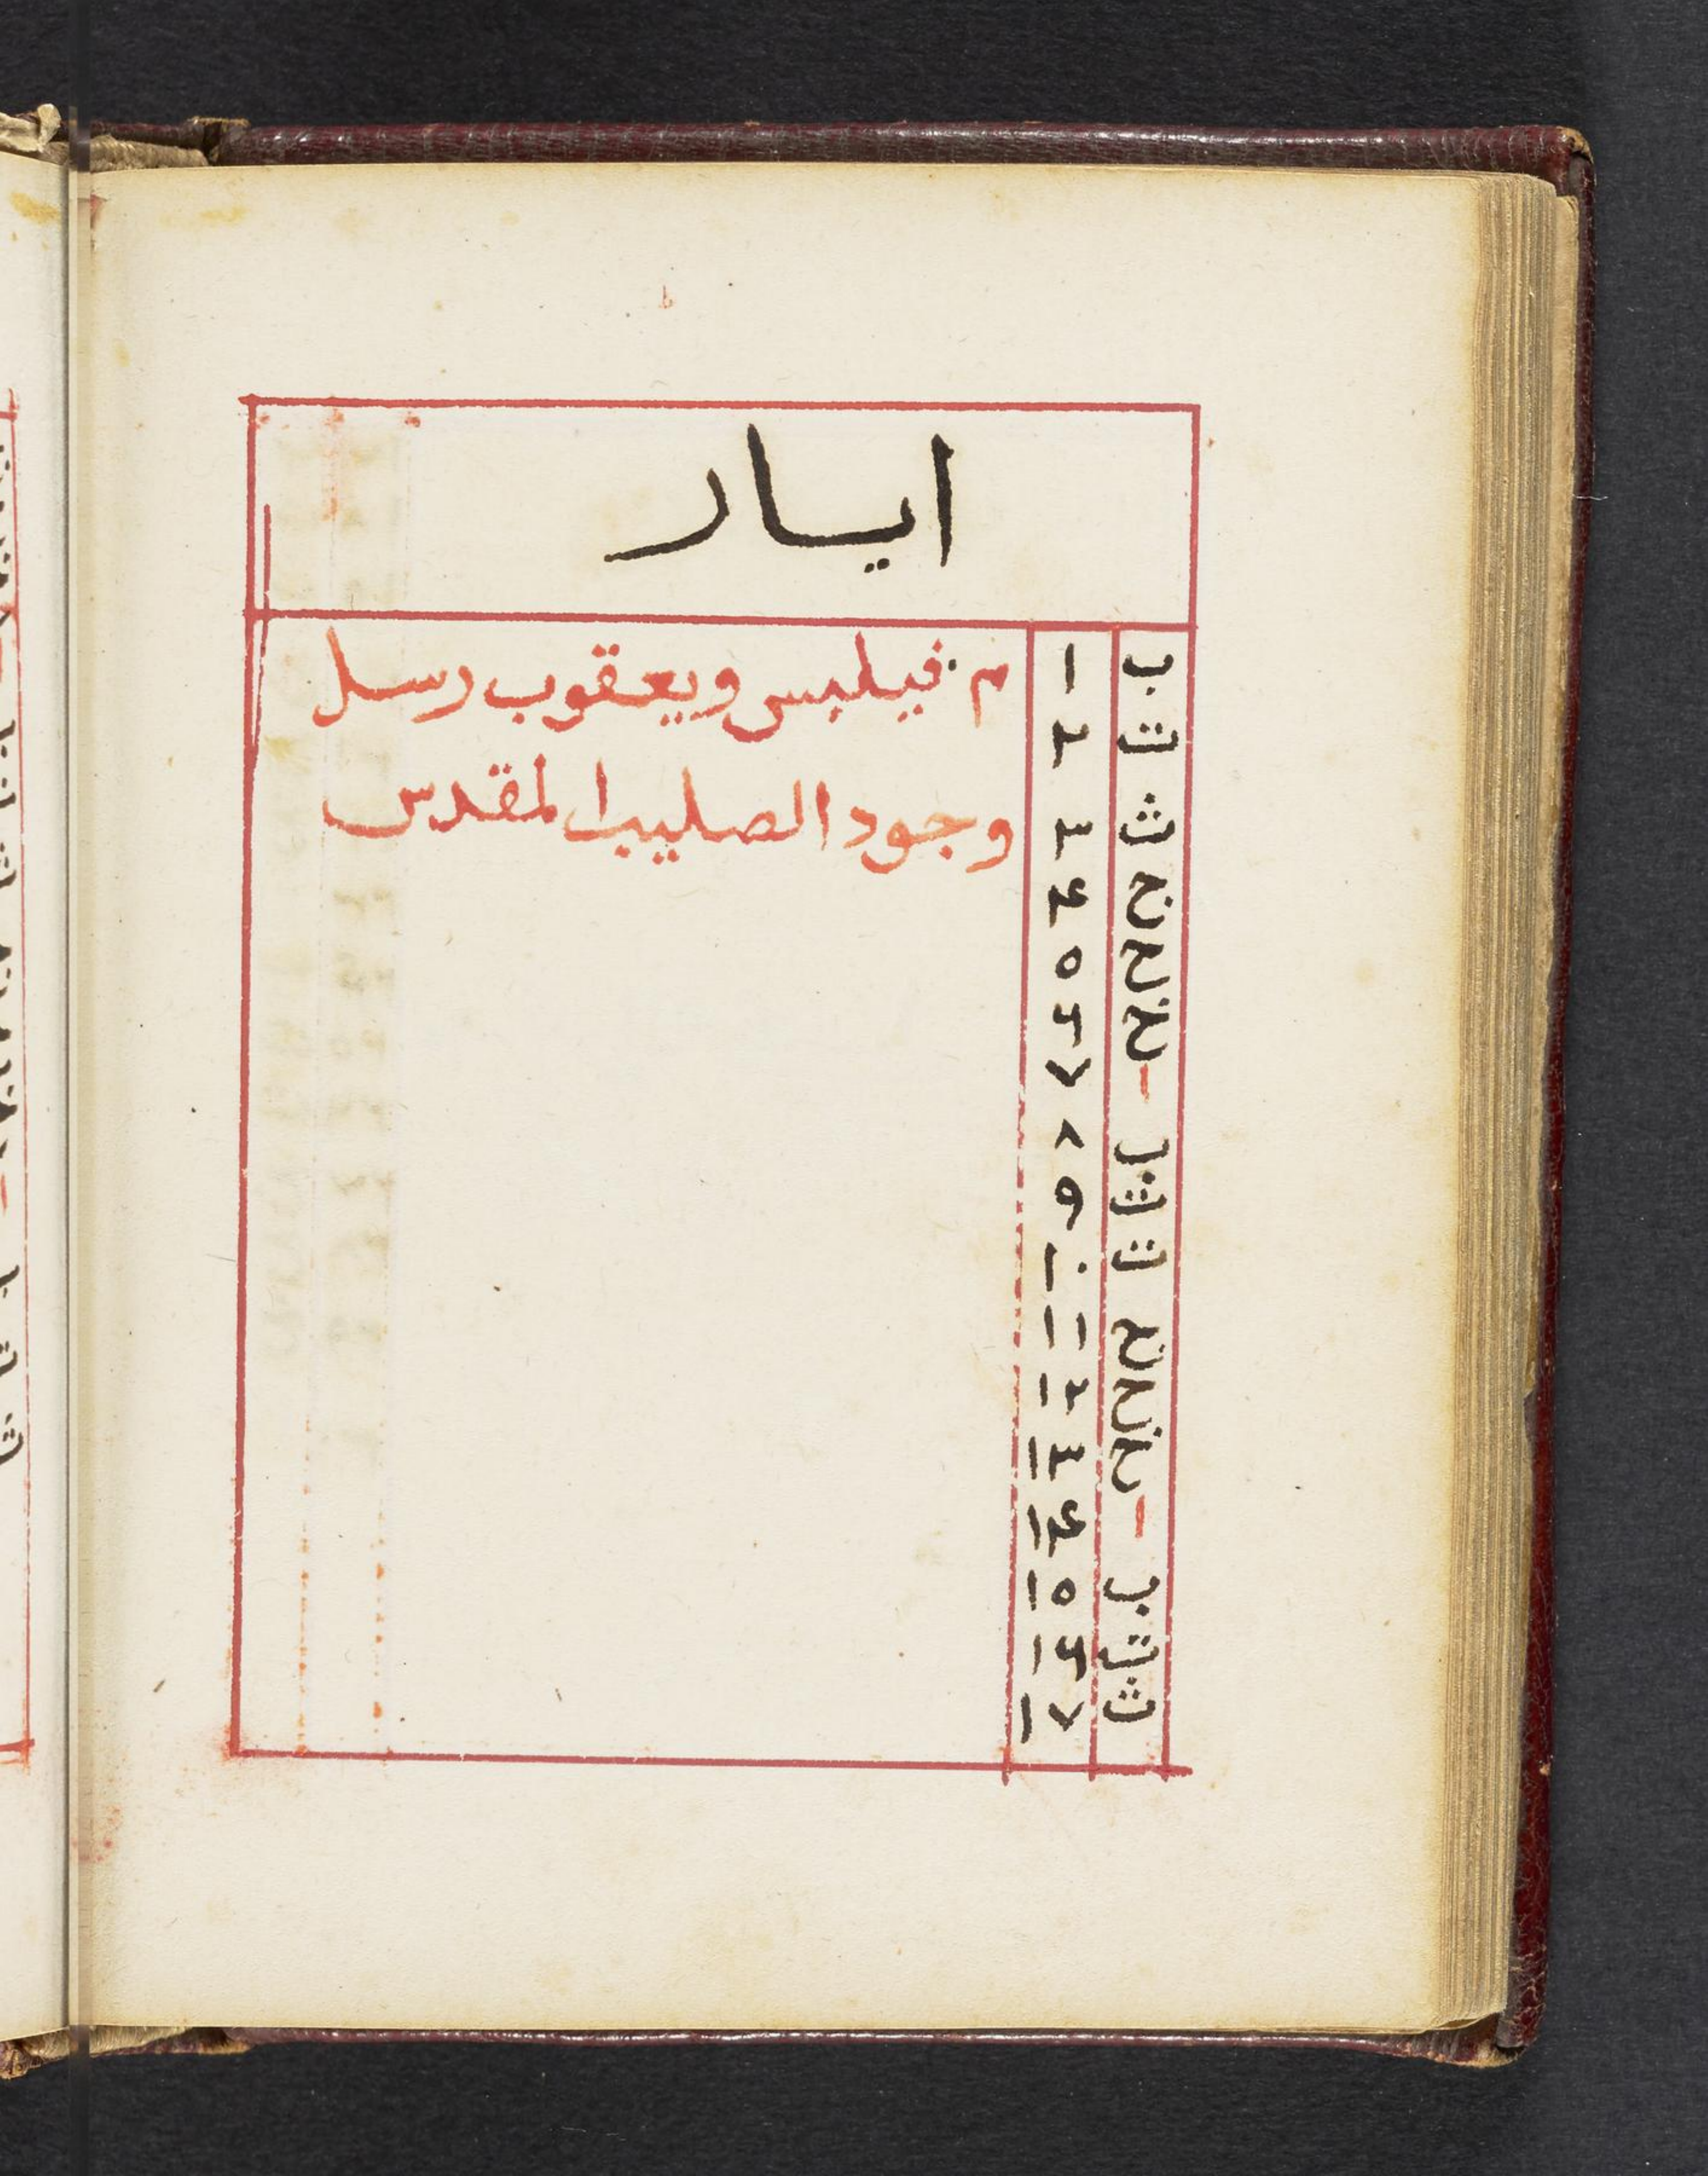 ايار
ب ١ م فيلبس ويعقوب رسل
ت ٢
ث ٣ وجود الصليب المقدس
ج ٤
ح ٥
خ ٦
ا ٧
ب ٨
ت ٩
ث ١٠
ج ١١
ح ١٢
خ ١٣
ا ١٤
ب ١٥
ت ١٦
ث ١٧